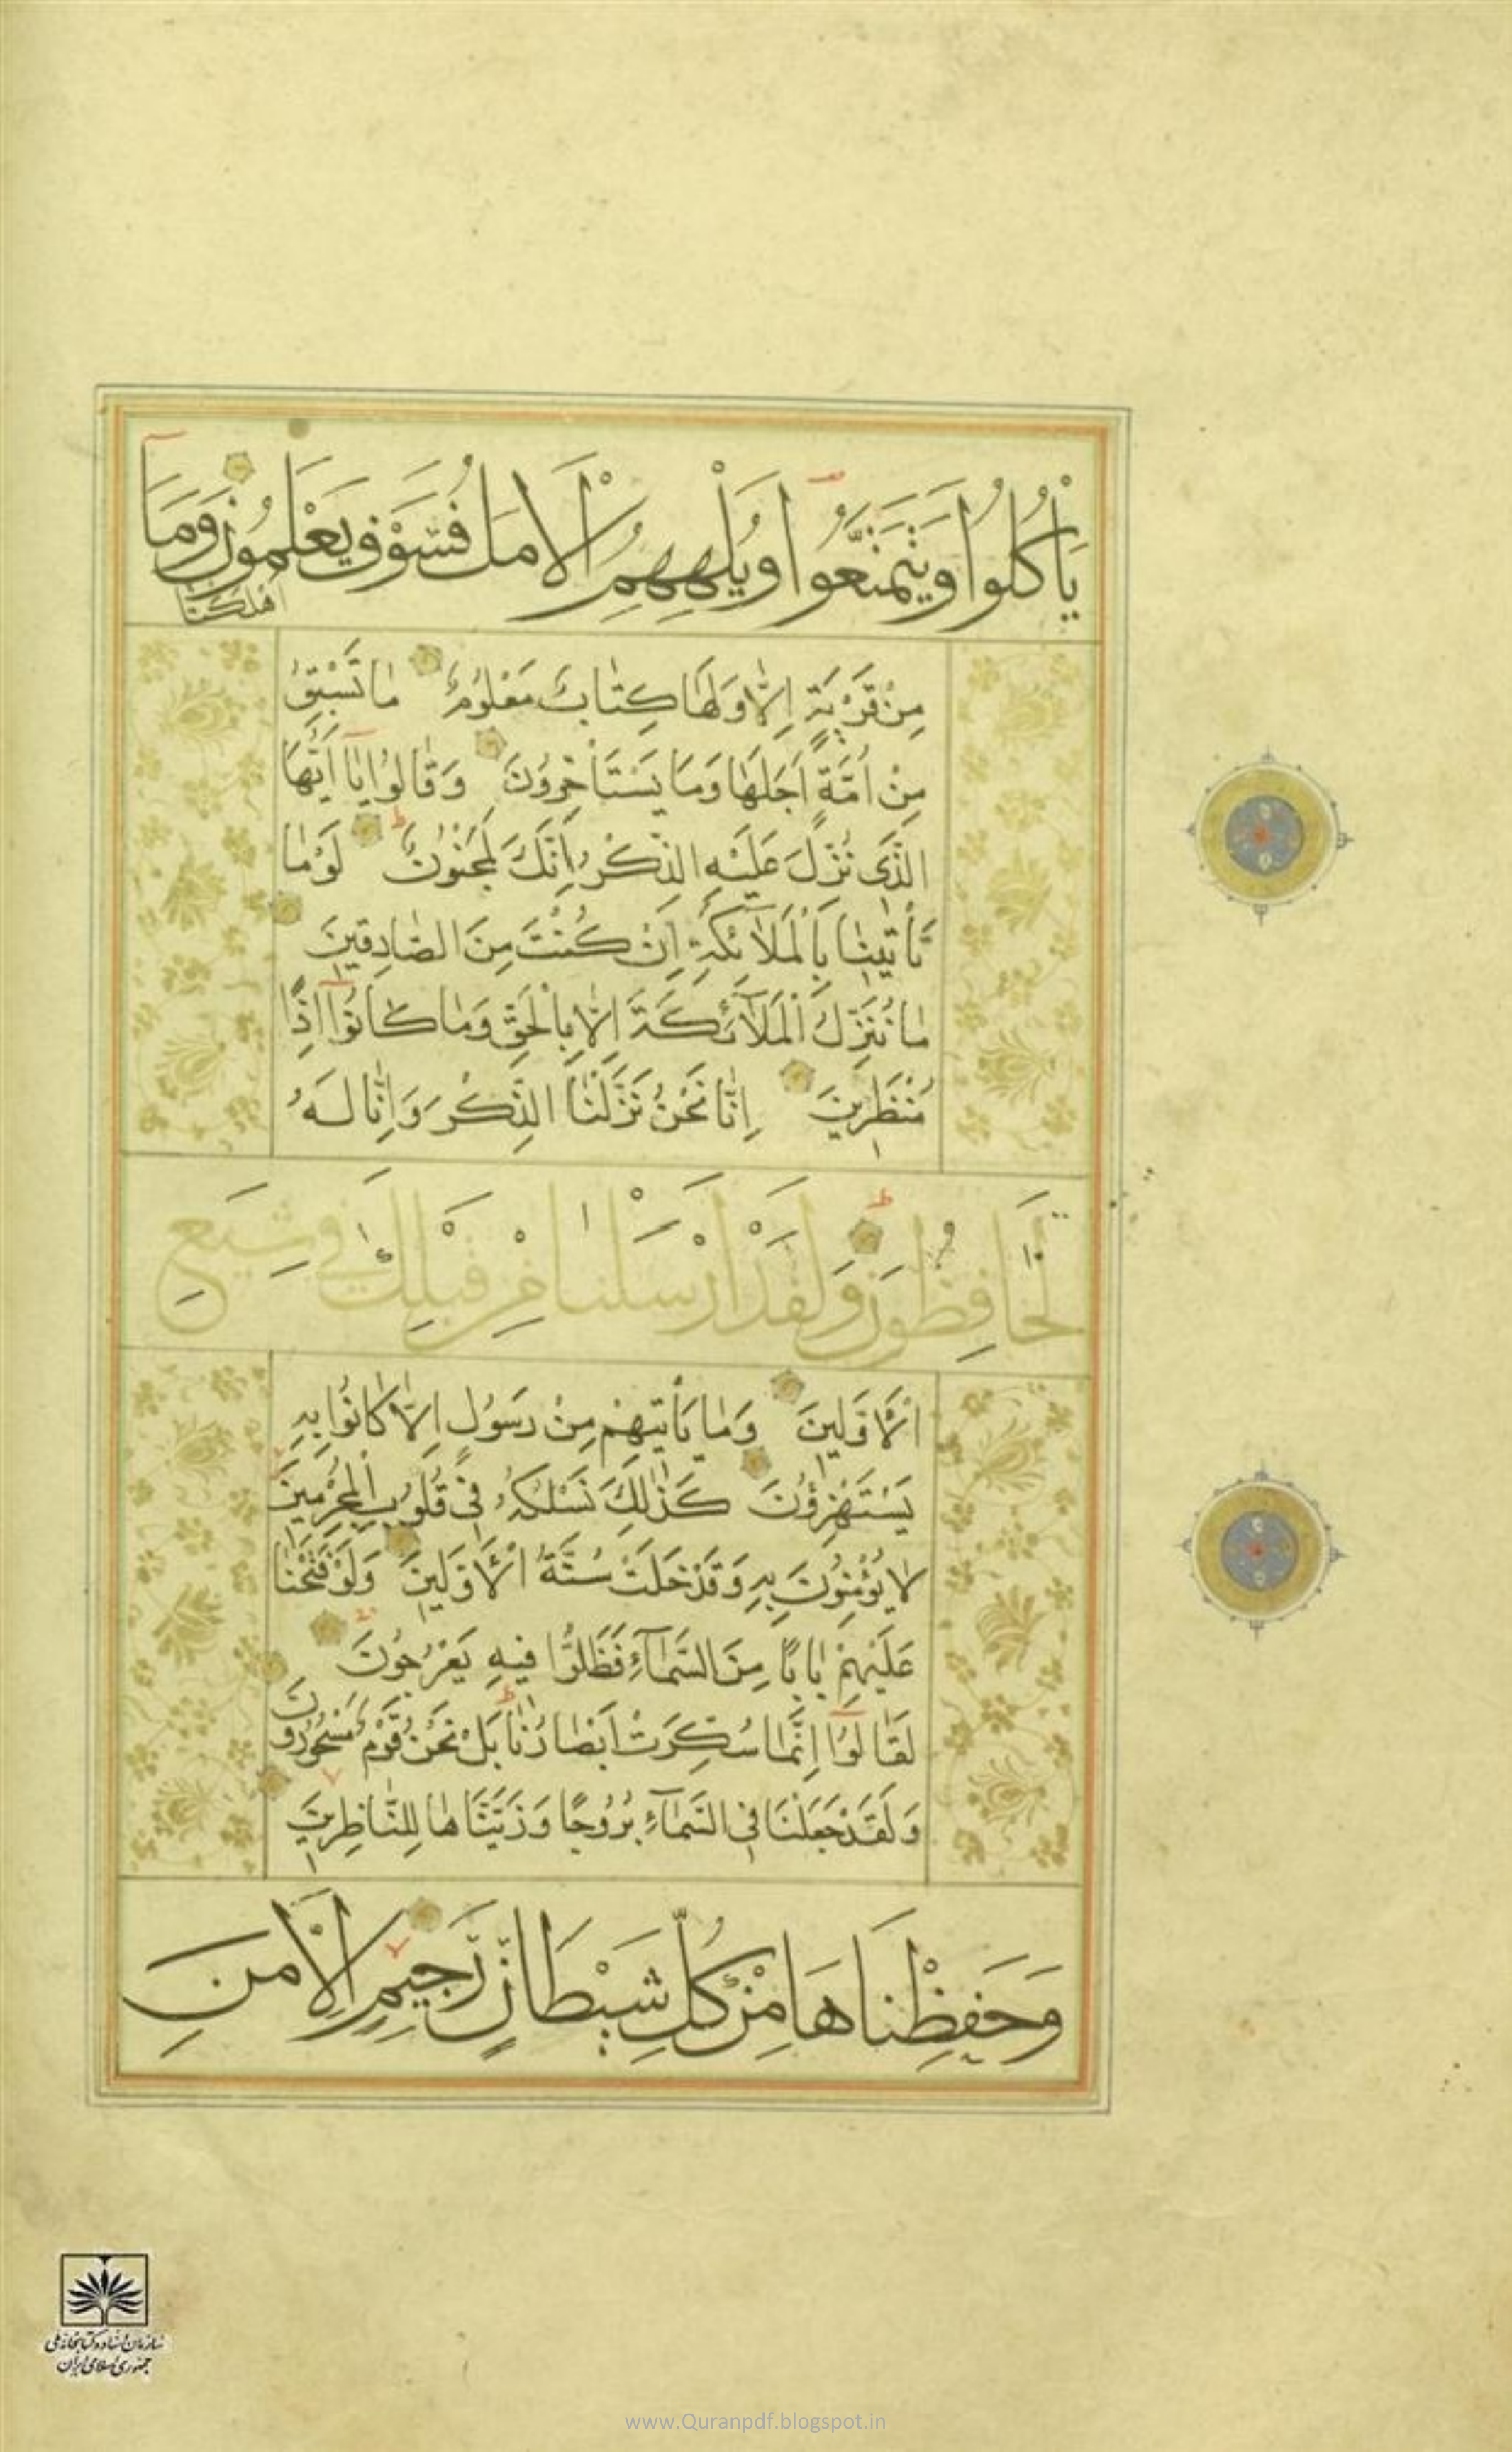 يَأْكُلُوا وَيَتَمَتَّعُوا وَيُلْهِهِمُ الْأَمَلُ فَسَوْفَ يَعْلَمُونَ وَمَا
أَهْلَكْنَا
مِنْ قَرْيَةٍ إِلَّا وَلَهَا كِتَابٌ مَعْلُومٌ مَا تَسْبِقُ
مِنْ أُمَّةٍ أَجَلَهَا وَمَا يَسْتَأْخِرُونَ وَقَالُوا يَا أَيُّهَا
الَّذِي نُزِّلَ عَلَيْهِ الذِّكْرُ إِنَّكَ لَمَجْنُونٌ لَوْ مَا
تَأْتِينَا بِالْمَلَائِكَةِ إِنْ كُنْتَ مِنَ الصَّادِقِينَ
مَا نُنَزِّلُ الْمَلَائِكَةَ إِلَّا بِالْحَقِّ وَمَا كَانُوا إِذًا
مُنْظَرِينَ إِنَّا نَحْنُ نَزَّلْنَا الذِّكْرَ وَإِنَّا لَهُ
لَحَافِظُونَ وَلَقَدْ أَرْسَلْنَا مِنْ قَبْلِكَ فِي شِيَعِ
الْأَوَّلِينَ وَمَا يَأْتِيهِمْ مِنْ رَسُولٍ إِلَّا كَانُوا بِهِ
يَسْتَهْزِؤُنَ كَذَٰلِكَ نَسْلُكُهُ فِي قُلُوبِ الْمُجْرِمِينَ
لَا يُؤْمِنُونَ بِهِ وَقَدْ خَلَتْ سُنَّةُ الْأَوَّلِينَ وَلَوْ فَتَحْنَا
عَلَيْهِمْ بَابًا مِنَ السَّمَاءِ فَظَلُّوا فِيهِ يَعْرُجُونَ
لَقَالُوا إِنَّمَا سُكِّرَتْ أَبْصَارُنَا بَلْ نَحْنُ قَوْمٌ مَسْحُورُونَ
وَلَقَدْ جَعَلْنَا فِي السَّمَاءِ بُرُوجًا وَزَيَّنَّاهَا لِلنَّاظِرِينَ
وَحَفِظْنَاهَا مِنْ كُلِّ شَيْطَانٍ رَجِيمٍ إِلَّا مَنِ
سازمان اسناد و کتابخانه ملی
جمهوری اسلامی ایران
www.Quranpdf.blogspot.in